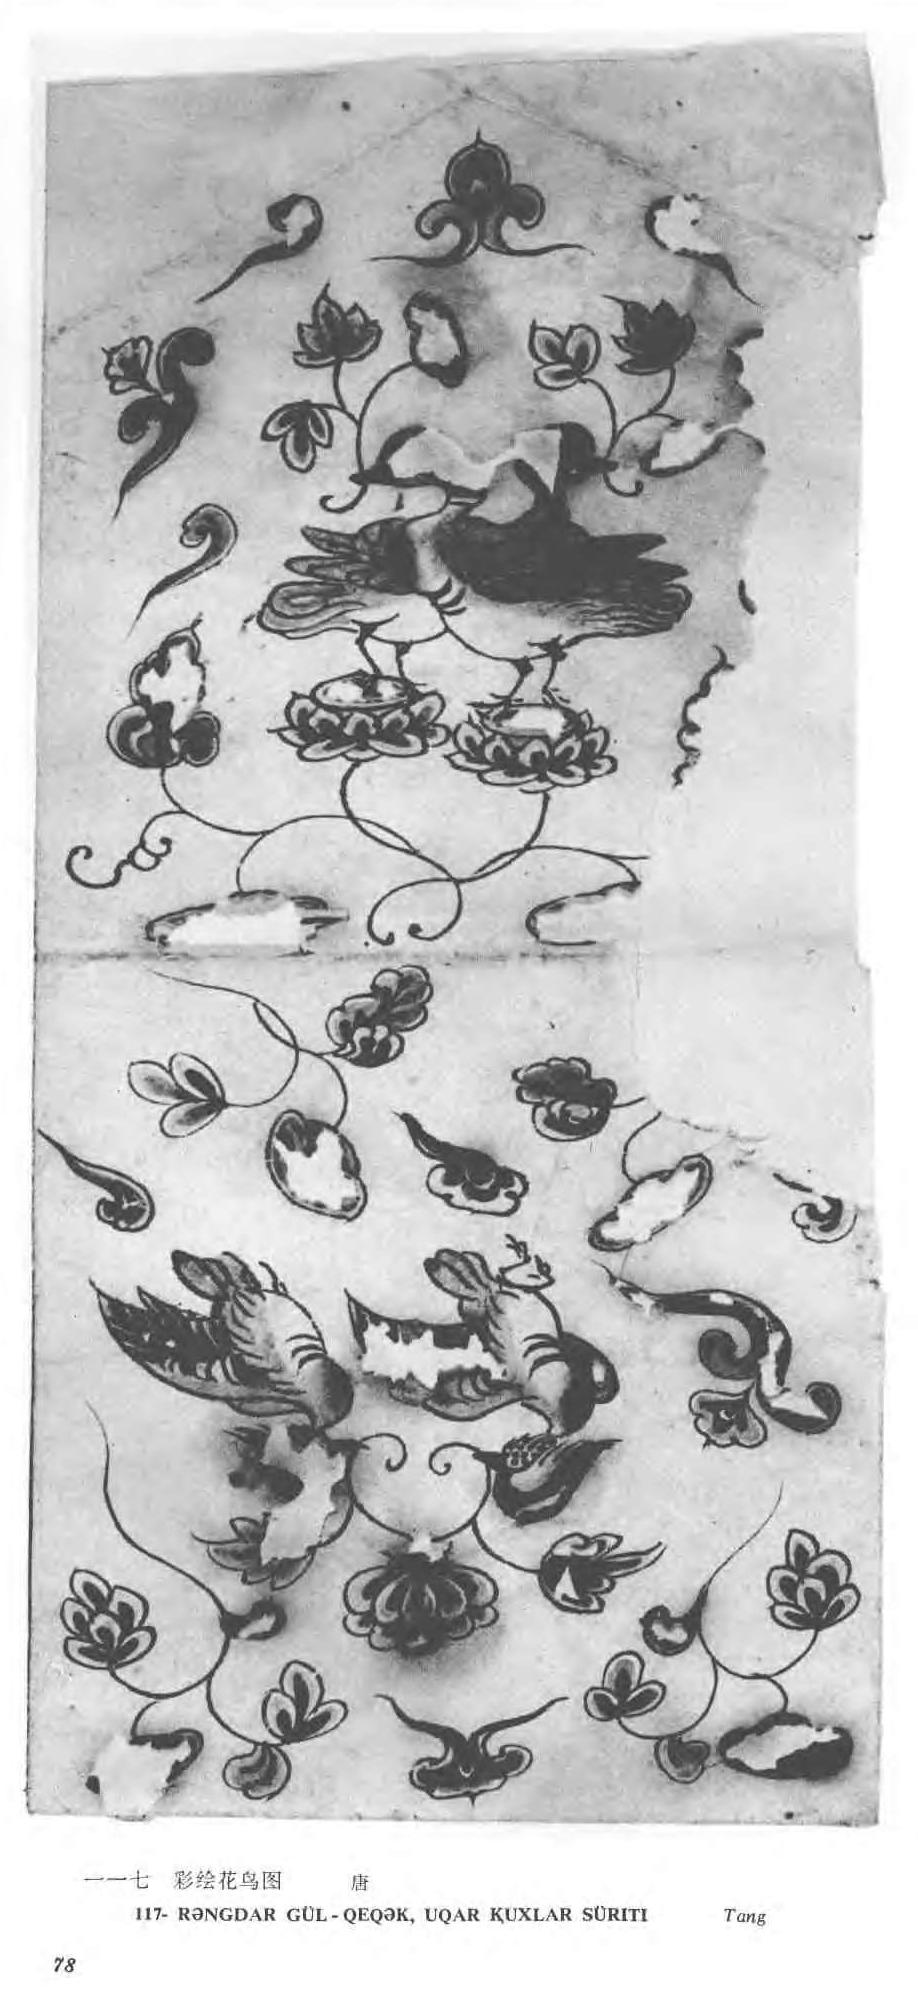 一一七 彩绘花鸟图 唐
117- RƏNGDAR GÜL-QEQƏK, UQAR ⱩUXLAR SÜRITI Tang
78